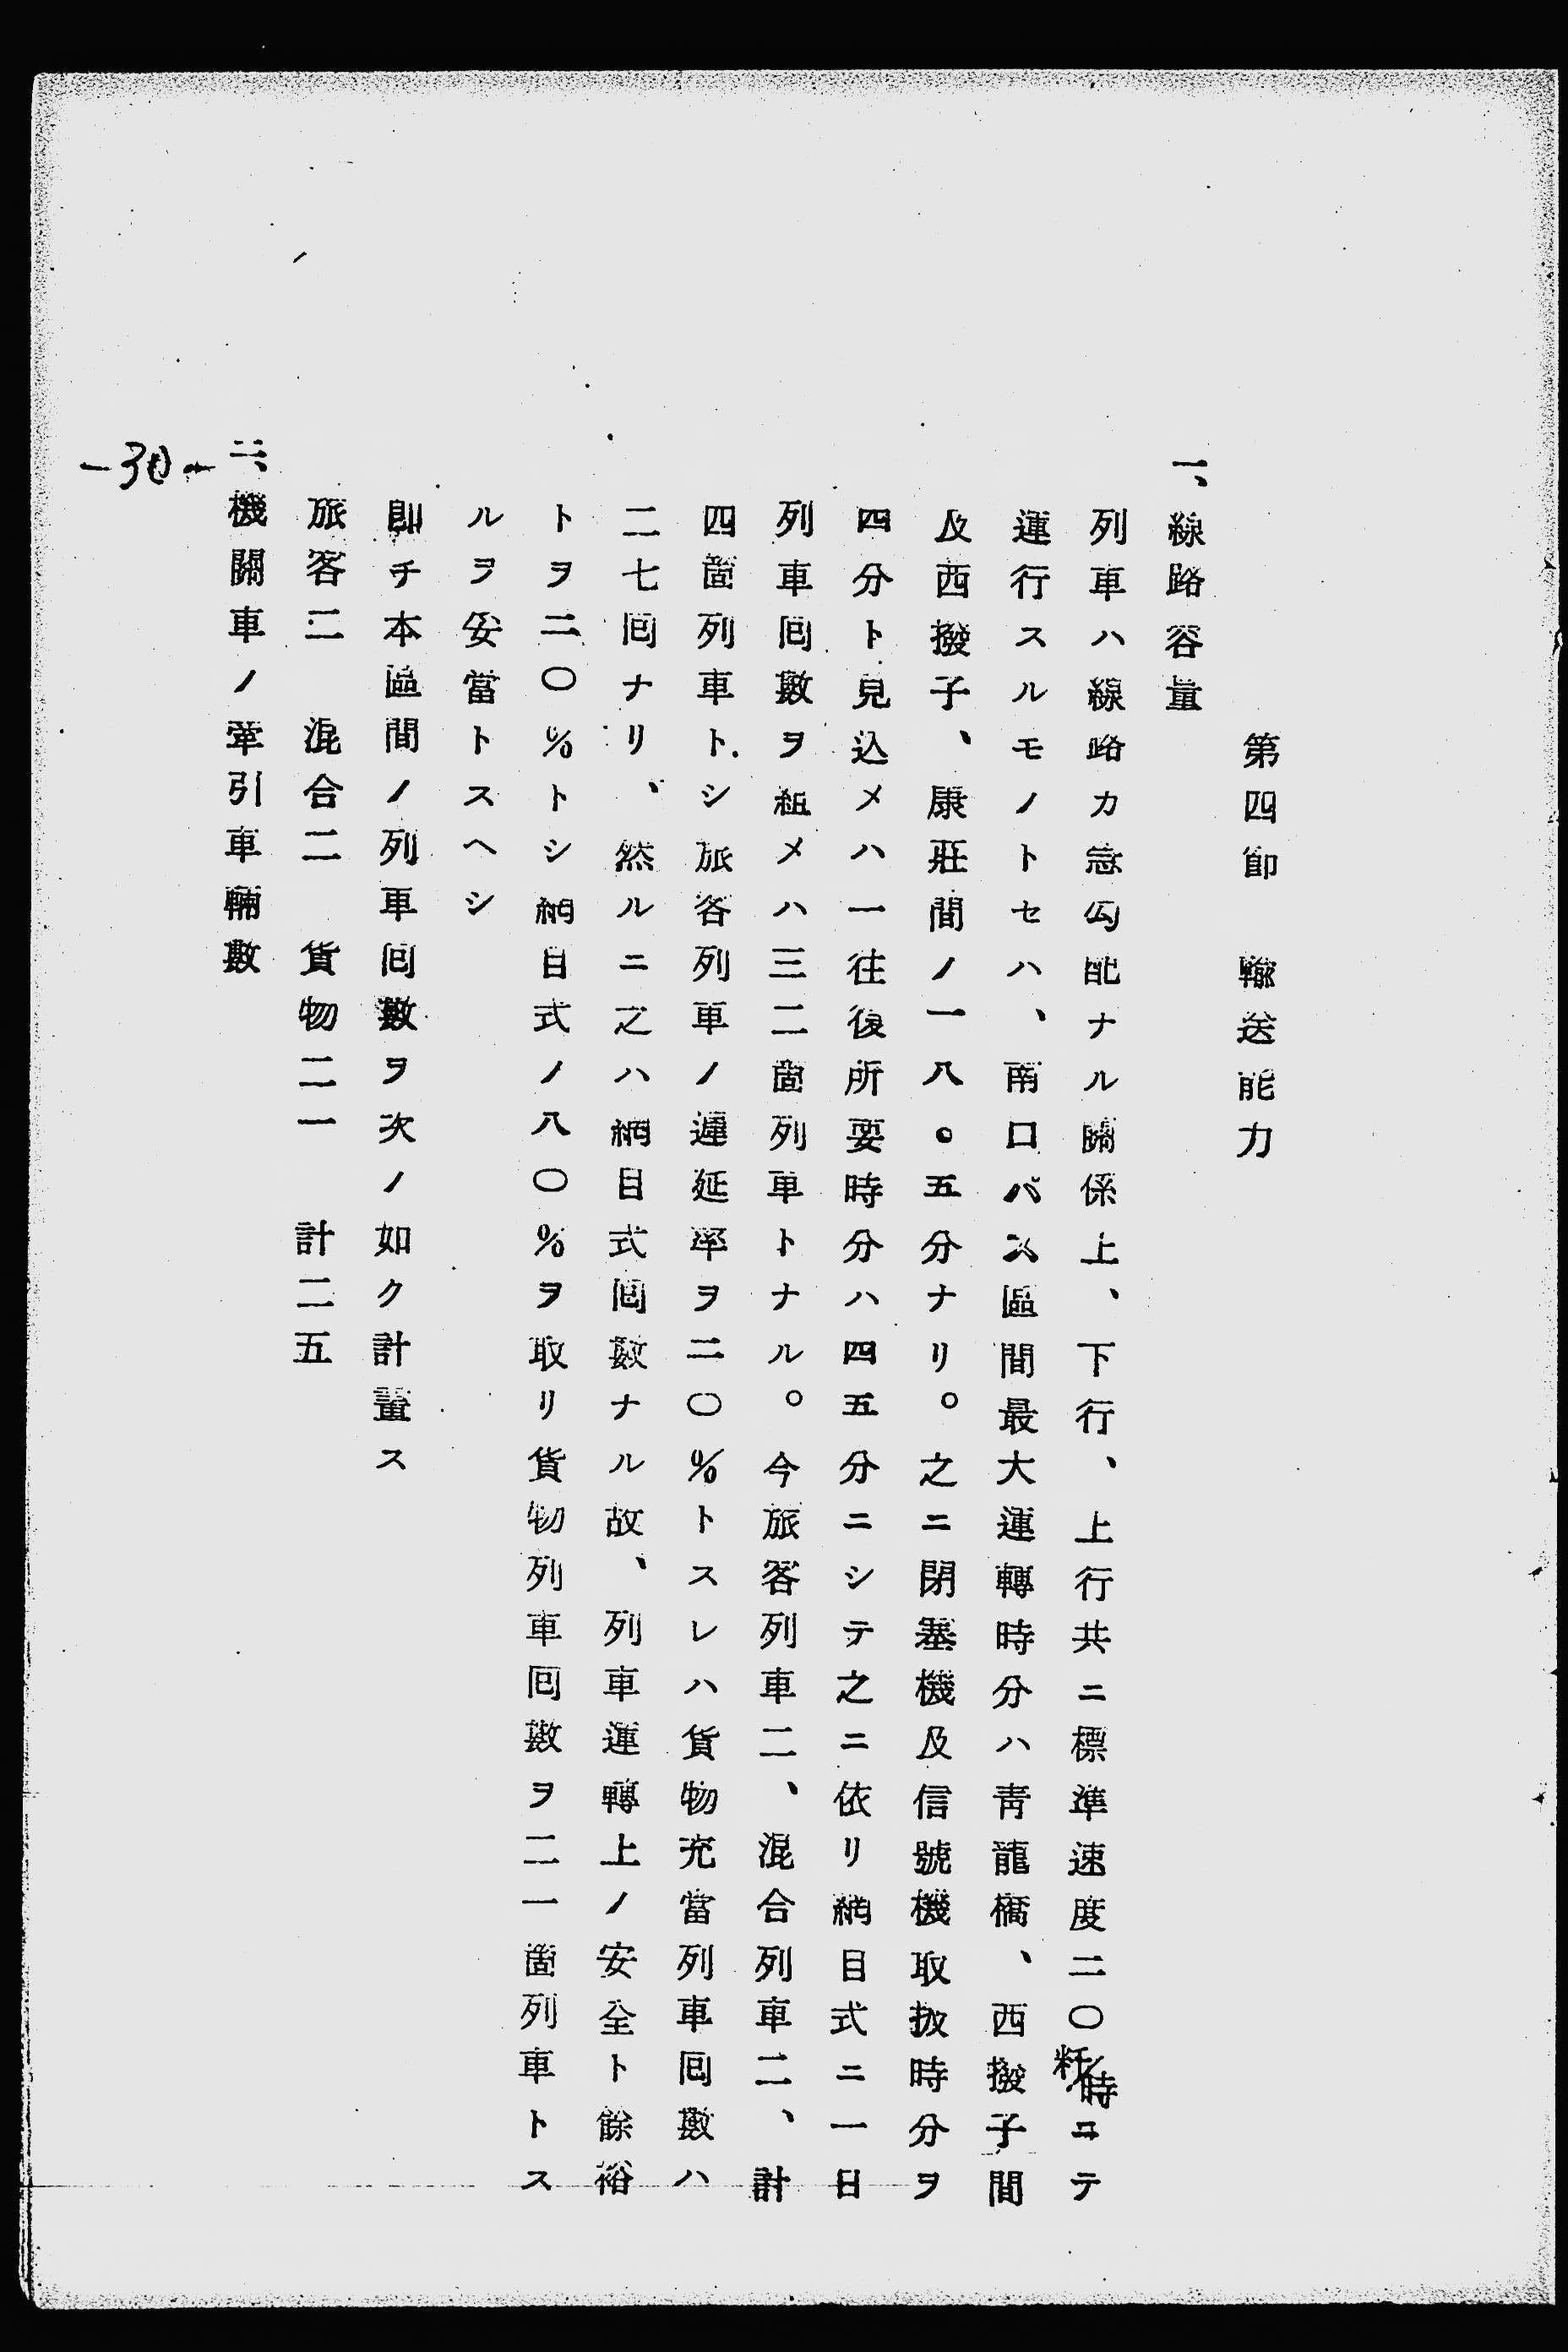 第四節　輸送能力
一、線路容量
列車ハ線路カ急勾配ナル關係上、下行、上行共ニ標準速度二〇粁/時ニテ
運行スルモノトセハ、南口バス區間最大運轉時分ハ靑龍橋、西撥子間
及西撥子、康莊間ノ一八。五分ナリ。之ニ閉塞機及信號機取扱時分ヲ
四分ト見込メハ一往復所要時分ハ四五分ニシテ之ニ依リ網目式ニ一日
列車囘數ヲ組メハ三二箇列車トナル。今旅客列車二、混合列車二、計
四箇列車ト.シ旅客列車ノ遲延率ヲ二〇%トスレハ貨物充當列車囘數ハ
二七囘ナリ、然ルニ之ハ網目式囘數ナル故、列車運轉上ノ安全ト餘裕
トヲ二〇%トシ網目式ノ八〇%ヲ取リ貨物列車囘數ヲ二一箇列車トス
ルヲ妥當トスヘシ
卽チ本區間ノ列車囘數ヲ次ノ如ク計畫ス
旅客二　混合二　貨物二一　計二五
二、機關車ノ牽引車輛數
-30-